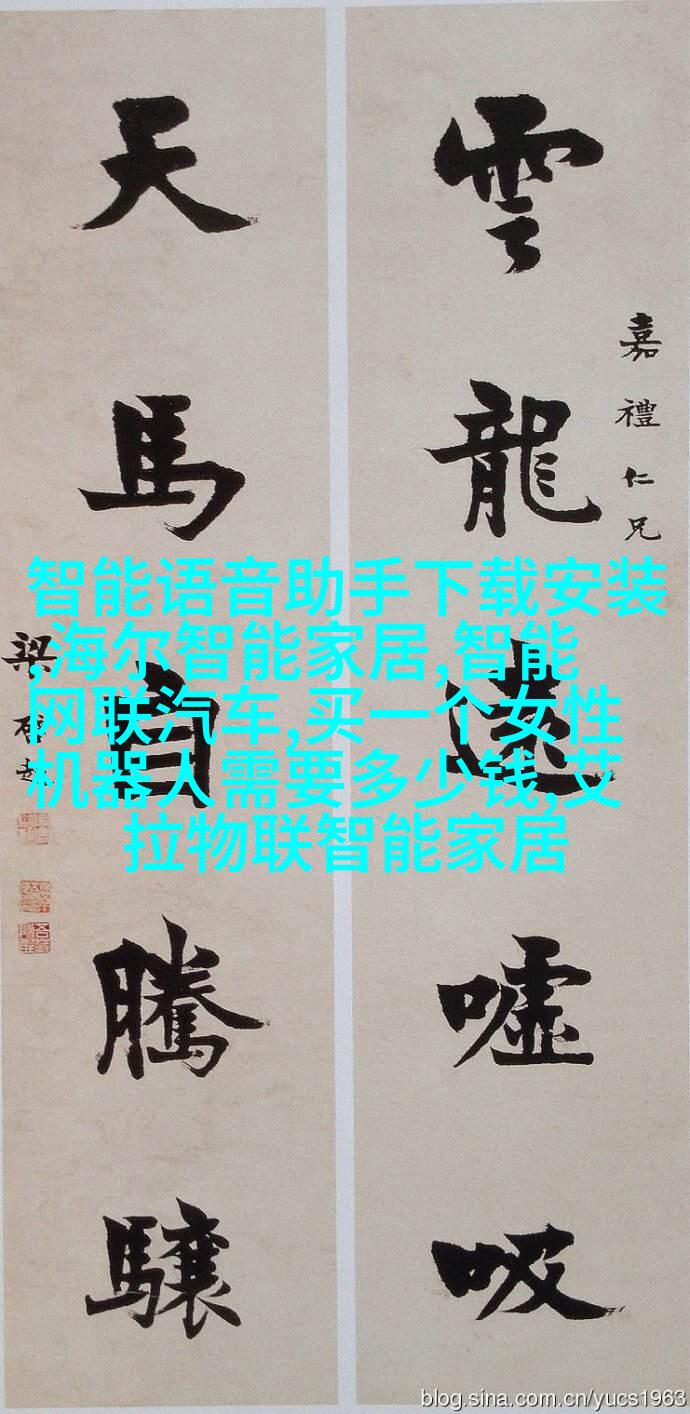 雲龍遠噓吸
嘉禮仁兄
天馬自騰驤
梁啓超
智能语音助手下载安装
,海尔智能家居,智能
网联汽车,买一个女性
机器人需要多少钱,艾
拉物联智能家居
blog.sina.com.cn/yucs1963